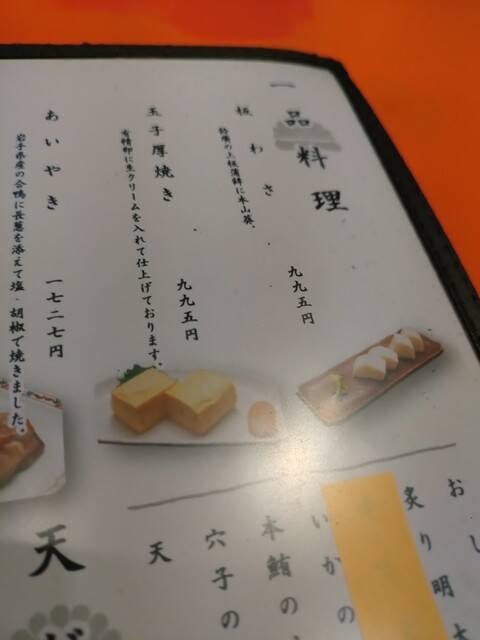 一品料理
板わさ
鈴廣の上板蒲鉾に本山葵。
九九五円
玉子厚焼き
有精卵に生クリームを入れて仕上げております。
九九五円
あいやき
岩手県産の合鴨に長葱を添えて塩・胡椒で焼きました。
一七二七円
おし
炙り明太
いかの
本鮪の
穴子の
天
天